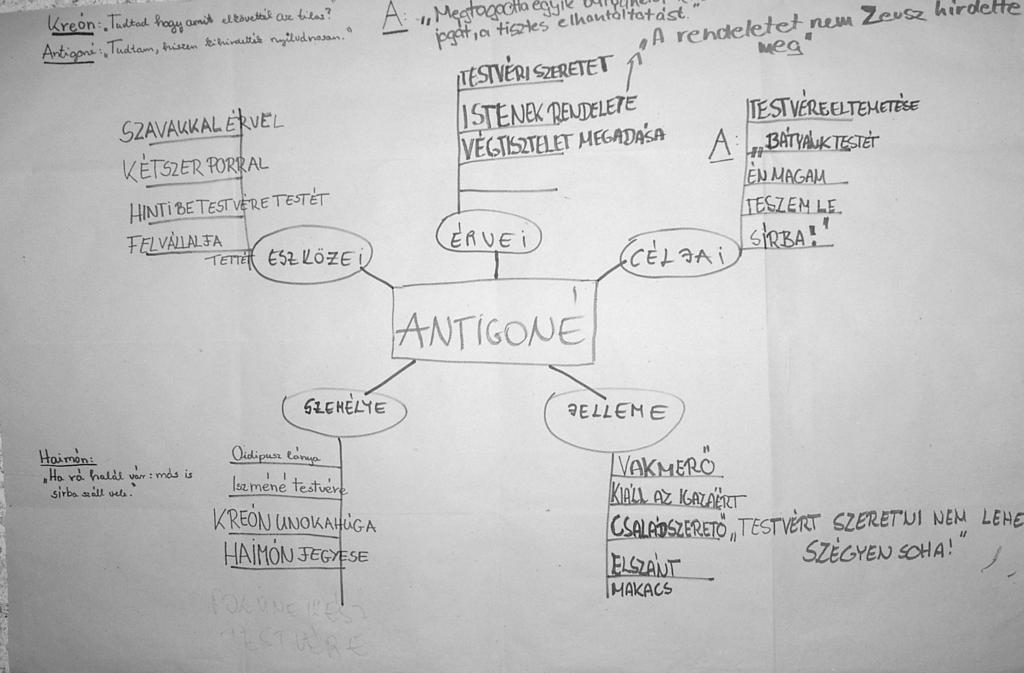 Kreón: „Tudtad hogy amit elkövettél az tilos?
Antigoné: „Tudtam, hiszen kihirdették nyilvánosan."
A: „Megtagadta egyik
jogát, a tisztes elhantoltatást."
„A rendeletet nem Zeusz hirdette
meg"
TESTVÉRI SZERETET
ISTENEK RENDELETE
VÉGTISZTELET MEGADÁSA
ÉRVEI
SZAVAKKAL ÉRVEL
KÉTSZER PORRAL
HINTI BE TESTVÉRE TESTÉT
FELVÁLLALJA
TETTÉT
ESZKÖZEI
TESTVÉRE ELTEMETÉSE
A: „BÁTYÁNK TESTÉT
ÉN MAGAM
TESZEM LE
SÍRBA!"
CÉLJAI
ANTIGONÉ
SZEMÉLYE
Oidipusz lánya
Iszméné testvére
KREÓN UNOKAHÚGA
HAIMÓN JEGYESE
POLÜNEIKÉSZ
TESTVÉRE
Haimón:
„Ha rá halál vár: más is
sírba száll vele."
JELLEME
VAKMERŐ
KIÁLL AZ IGAZÁÉRT
CSALÁDSZERETŐ „TESTVÉRT SZERETNI NEM LEHE
SZÉGYEN SOHA!"
ELSZÁNT
MAKACS